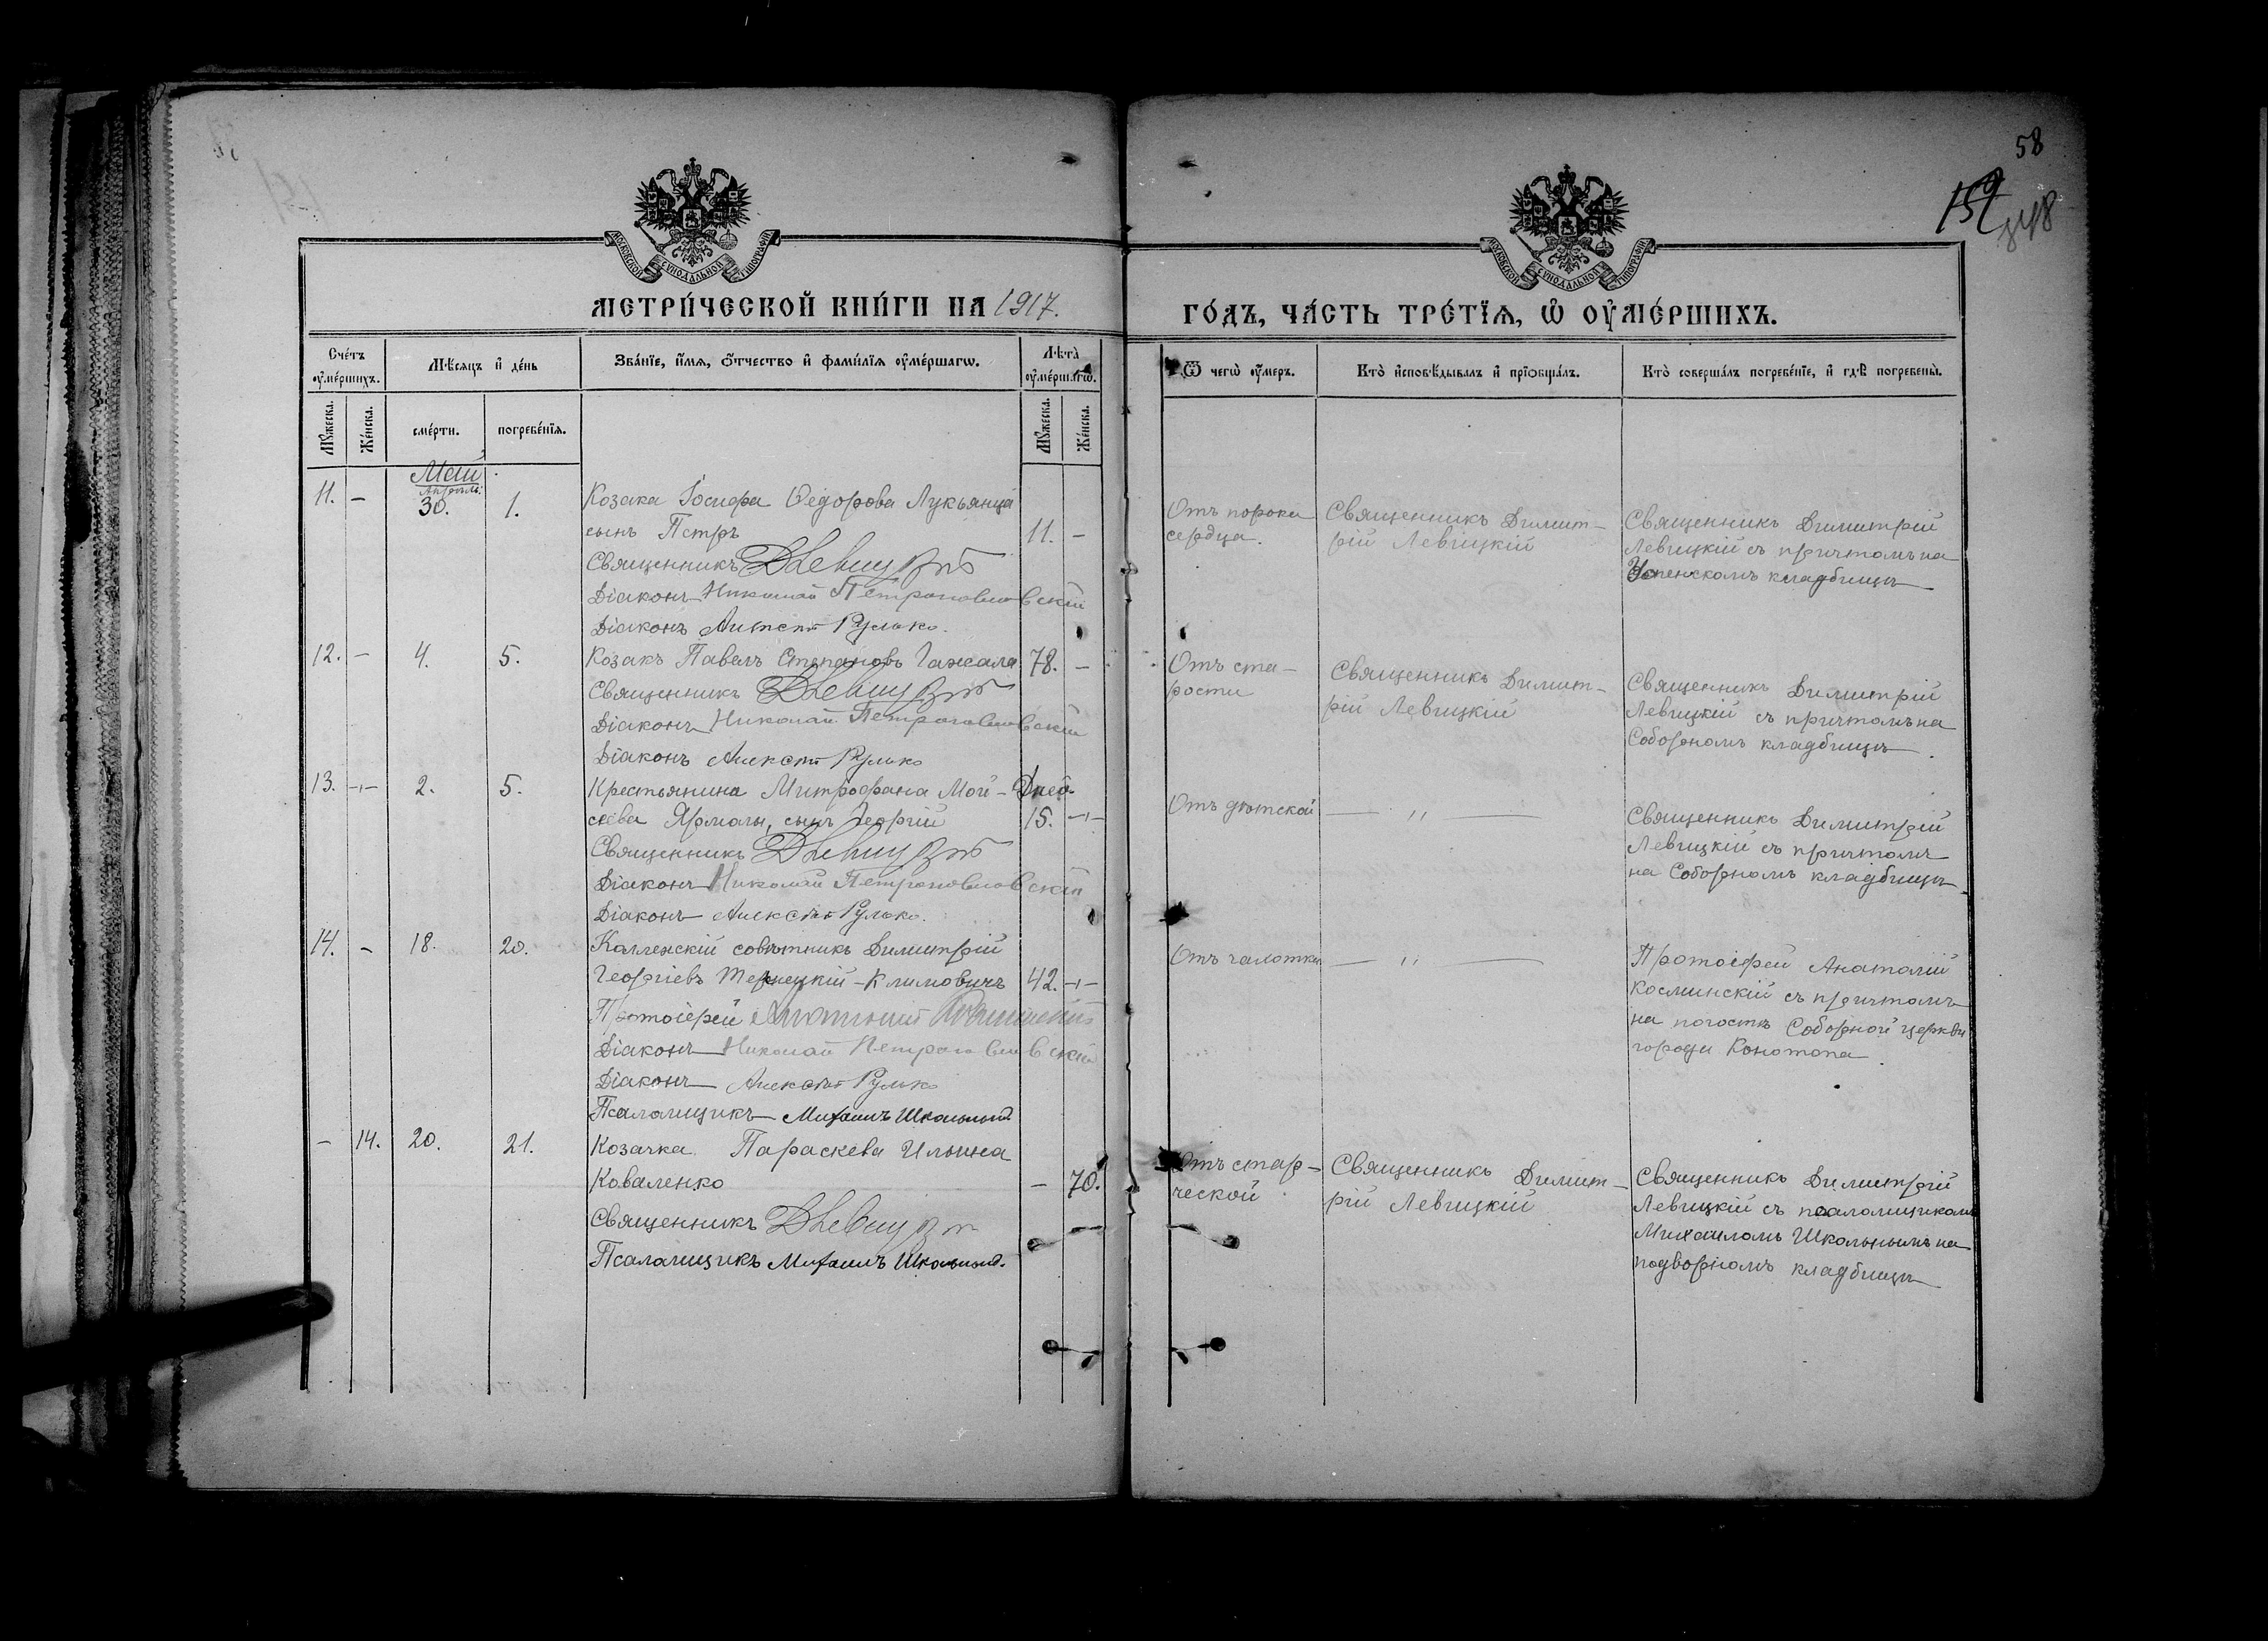 58
152
МОСКОВСКОЙ СѴНОДАЛЬНОЙ ТИПОГРАФІИ
МОСКОВСКОЙ СѴНОДАЛЬНОЙ ТИПОГРАФІИ
МЕТРИ́ЧЕСКОЙ КНИ́ГИ НА 1917.
ГО́ДЪ, ЧА́СТЬ ТРЕ́ТЇѦ, Ѡ҆ ОУ҆МЕ́РШИХЪ.
Сче́тъ оу҆ме́ршихъ.
Мѣ́сяцъ и҆ де́нь
Зва́нїе, и҆́мѧ, ѻ҆́тчество и҆ фами́лїѧ оу҆ме́ршагѡ.
Лѣта̀ оу҆ме́ршагѡ.
Ѿ чегѡ̀ оу҆́меръ.
Кто̀ и҆сповѣ́дывалъ и҆ прїѡбща́лъ.
Кто̀ соверша́лъ погребе́нїе, и҆ гдѣ̀ погребены̀.
Мꙋ́жеска.
Же́нска.
сме́рти.
погребе́нїѧ.
Мꙋ́жеска.
Же́нска.
Май
Апрѣль
11. – 30. 1. Козака Іосифа Ѳедорова Лукьянца
сынъ Петръ 11. –
Священникъ
Діаконъ Николай Петропавловскій
Діаконъ Рулько.
Отъ порока
сердца.
Священникъ Димит-
рій Левицкій
Священникъ Димитрій
Левицкій съ причтомъ на
Успенскомъ кладбищѣ
12. – 4. 5. Козакъ Павелъ Степановъ Гажала 78. –
Священникъ
Діаконъ Николай Петропавловскій
Діаконъ Рулько
Отъ ста-
рости
Священникъ Димит-
рій Левицкій
Священникъ Димитрій
Левицкій съ причтомъ на
Соборномъ кладбищѣ.
13. –"– 2. 5. Крестьянина Митрофана Мой- Дней.
сеева Ярмалы, сынъ Георгій 15. –"–
Священникъ
Діаконъ Николай Петропавловскій
Діаконъ Рулько.
Отъ дѣтской
— " —
Священникъ Димитрій
Левицкій съ причтомъ
на Соборномъ кладбищѣ.
14. – 18. 20. Коллежскій совѣтникъ Димитрій
Георгіевъ Тернецкій-Климовичъ 42. –"–
Протоіерей Анатолій Косминскій
Діаконъ Николай Петропавловскій
Діаконъ Рулько
Псаломщикъ Михаилъ Школьный.
Отъ чахотки
— " —
Протоіерей Анатолій
Косминскій съ причтомъ
на погостѣ Соборной церкви
города Конотопа.
– 14. 20. 21. Козачка Параскева Ильина
Коваленко – 70.
Священникъ
Псаломщикъ Михаилъ Школьный.
Отъ стар-
ческой
Священникъ Димит-
рій Левицкій
Священникъ Димитрій
Левицкій съ псаломщикомъ
Михаиломъ Школьнымъ на
подворномъ кладбищѣ